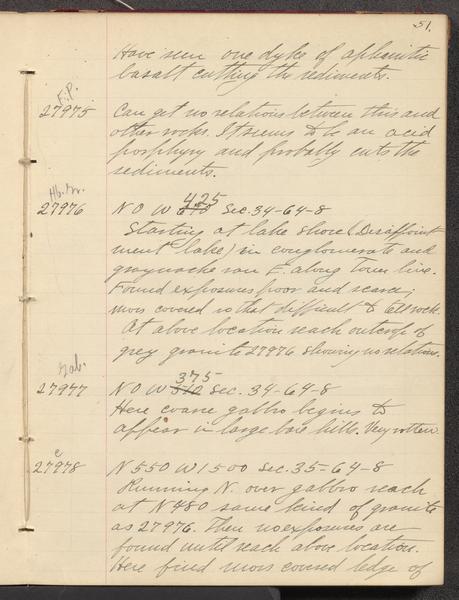 51.
Have seen one dyke of aphanitic
basalt cutting the sediments.
F.P.
27975 Can get no relations between this and
other rocks. It seems to be an acid
porphyry and probably cuts the
sediments.
27976 N 0 W 425 Sec. 34-64-8
Starting at lake shore (Disappoint
ment lake) in conglomerate and
graywacke run E. along Town line.
Found exposures poor and scarce;
moss covered so that difficult to tell rock.
At above location reach outcrop of
grey granite 27976 showing no relations.
Gab.
27977 N 0 W 375 Sec. 34-64-8
Here coarse gabbro begins to
appear in large bare hills. Very rotten
27978 N 550 W 1500 Sec. 35-64-8
Running N. over gabbro reach
at N 480 same kind of granite
as 27976. Then no exposures are
found until reach above location.
Here find moss covered ledge of